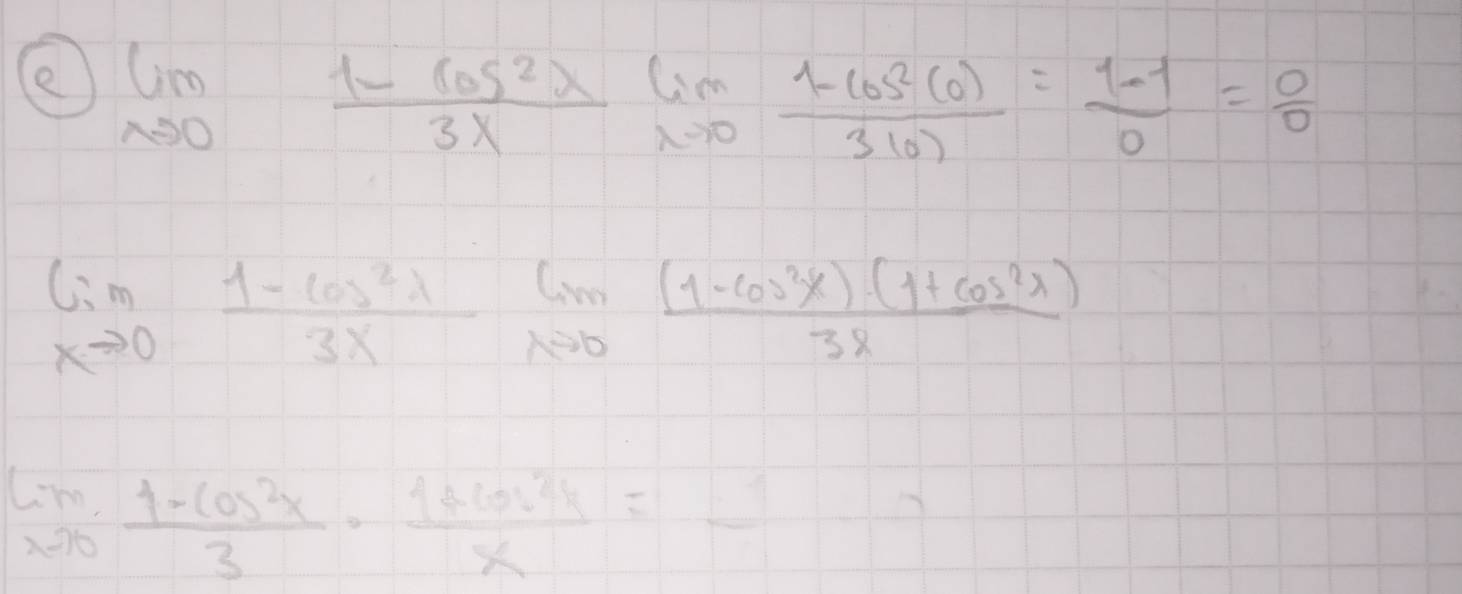 ⓔ lim x→0 (1 - cos²x)/(3x) lim x→0 (1 - cos²(0))/(3(0)) = (1-1)/0 = 0/0
lim x→0 (1 - cos²x)/(3x) lim x→0 ((1 - cos²x)·(1 + cos²x))/(3x)
lim x→0 (1 - cos²x)/3 · (1 + cos²x)/x =